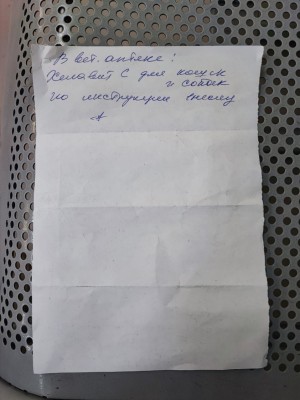 В вет. аптеке:
Хелавит С для кошек
и собак
по инструкции внешу